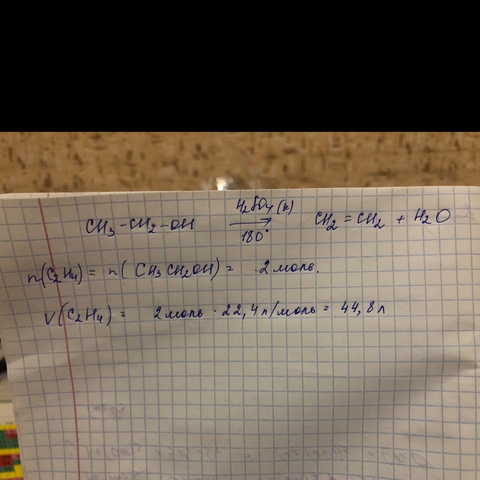 CH₃-CH₂-OH H₂SO₄(к) → 180° CH₂=CH₂ + H₂O
n(C₂H₄) = n(CH₃CH₂OH) = 2 моль.
V(C₂H₄) = 2 моль · 22,4 л/моль = 44,8 л